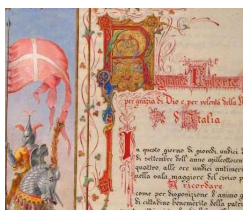 Regnante Umberto
per grazia di Dio e per volontà della
d'Italia
In questo giorno di giovedì, undici
di settembre dell'anno milleottocen
quattro, alle ore undici antimer
nella sala maggiore del civico p
A ricordare
come per disposizione d'animo
di cittadino benemerito della patri